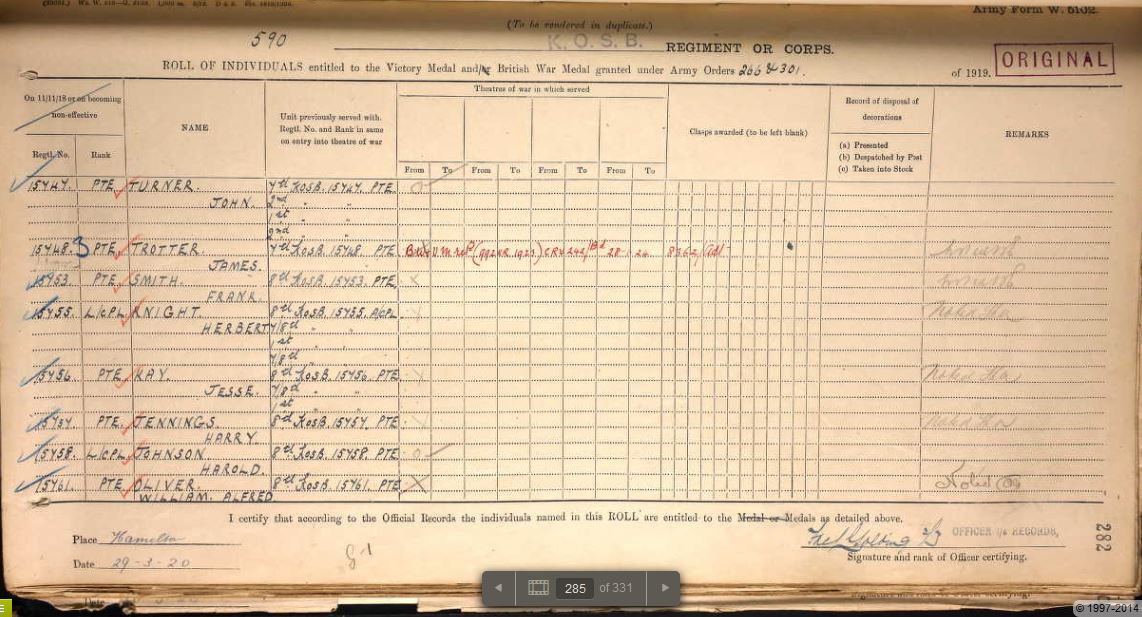 Army Form W. 5102.
(To be rendered in duplicate.)
590 K. O. S. B. REGIMENT OR CORPS.
ROLL OF INDIVIDUALS entitled to the Victory Medal and/or British War Medal granted under Army Orders 266 & 301. of 1919.
ORIGINAL
On 11/11/18 or on becoming non-effective
Regtl. No.
Rank
NAME
Unit previously served with. Regtl. No. and Rank in same on entry into theatre of war
Theatres of war in which served
From To From To From To From To From To From To
Clasps awarded (to be left blank)
Record of disposal of decorations
(a) Presented
(b) Despatched by Post
(c) Taken into Stock
REMARKS
15747. PTE TURNER. 7th KOSB. 15747. PTE.
JOHN. 2nd " "
1st " "
2nd
15748. 3 PTE TROTTER. 7th KOSB. 15748. PTE.
JAMES.
15753. PTE SMITH. 8th KOSB. 15753. PTE.
FRANK.
15755. L/CPL KNIGHT. 8th KOSB. 15755. A/CPL
HERBERT 7/8th " "
1st " "
7/8th
15756. PTE KAY. 8th KOSB. 15756. PTE.
JESSE. 7/8th " "
1st " "
15757. PTE. JENNINGS. 8th KOSB. 15757. PTE
HARRY.
15758. L/CPL JOHNSON. 8th KOSB. 15758. PTE
HAROLD.
15761. PTE OLIVER. 8th KOSB. 15761. PTE
WILLIAM. ALFRED
I certify that according to the Official Records the individuals named in this ROLL are entitled to the Medal or Medals as detailed above.
Place Hamilton
OFFICER i/c RECORDS,
Signature and rank of Officer certifying.
Date 29-3-20
282
285 of 331
© 1997-2014